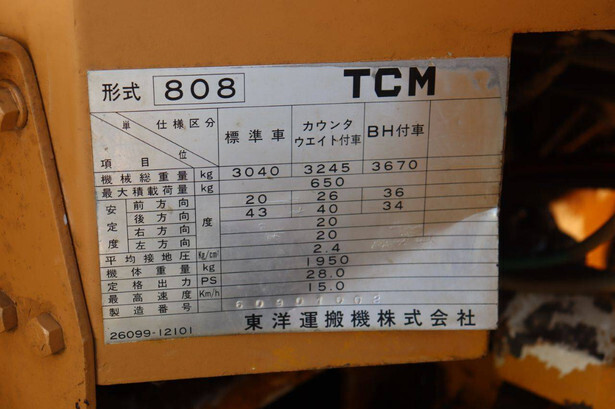 形式 808 TCM
単位 仕様区分 項目 標準車 カウンタウエイト付車 BH付車
機械総重量 kg 3040 3245 3670
最大積載荷量 kg 650
安定度 前方向 度 20 26 36
後方向 43 40 34
右方向 20
左方向 20
平均接地圧 Kg/cm² 2.4
機体重量 kg 1950
定格出力 PS 28.0
最高速度 Km/h 15.0
製造番号
26099-12101 東洋運搬機株式会社